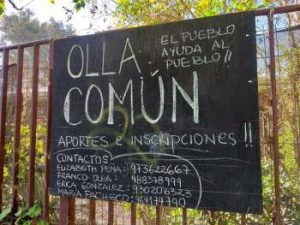 OLLA
COMÚN
EL PUEBLO
AYUDA AL
PUEBLO!!
APORTES E INSCRIPCIONES!!
CONTACTOS:
ELIZABETH PEÑA: 973622667
FRANCO OLEA: 988378999
ERICA GONZALEZ: 930206323
MARÍA PACHECO: 969177790